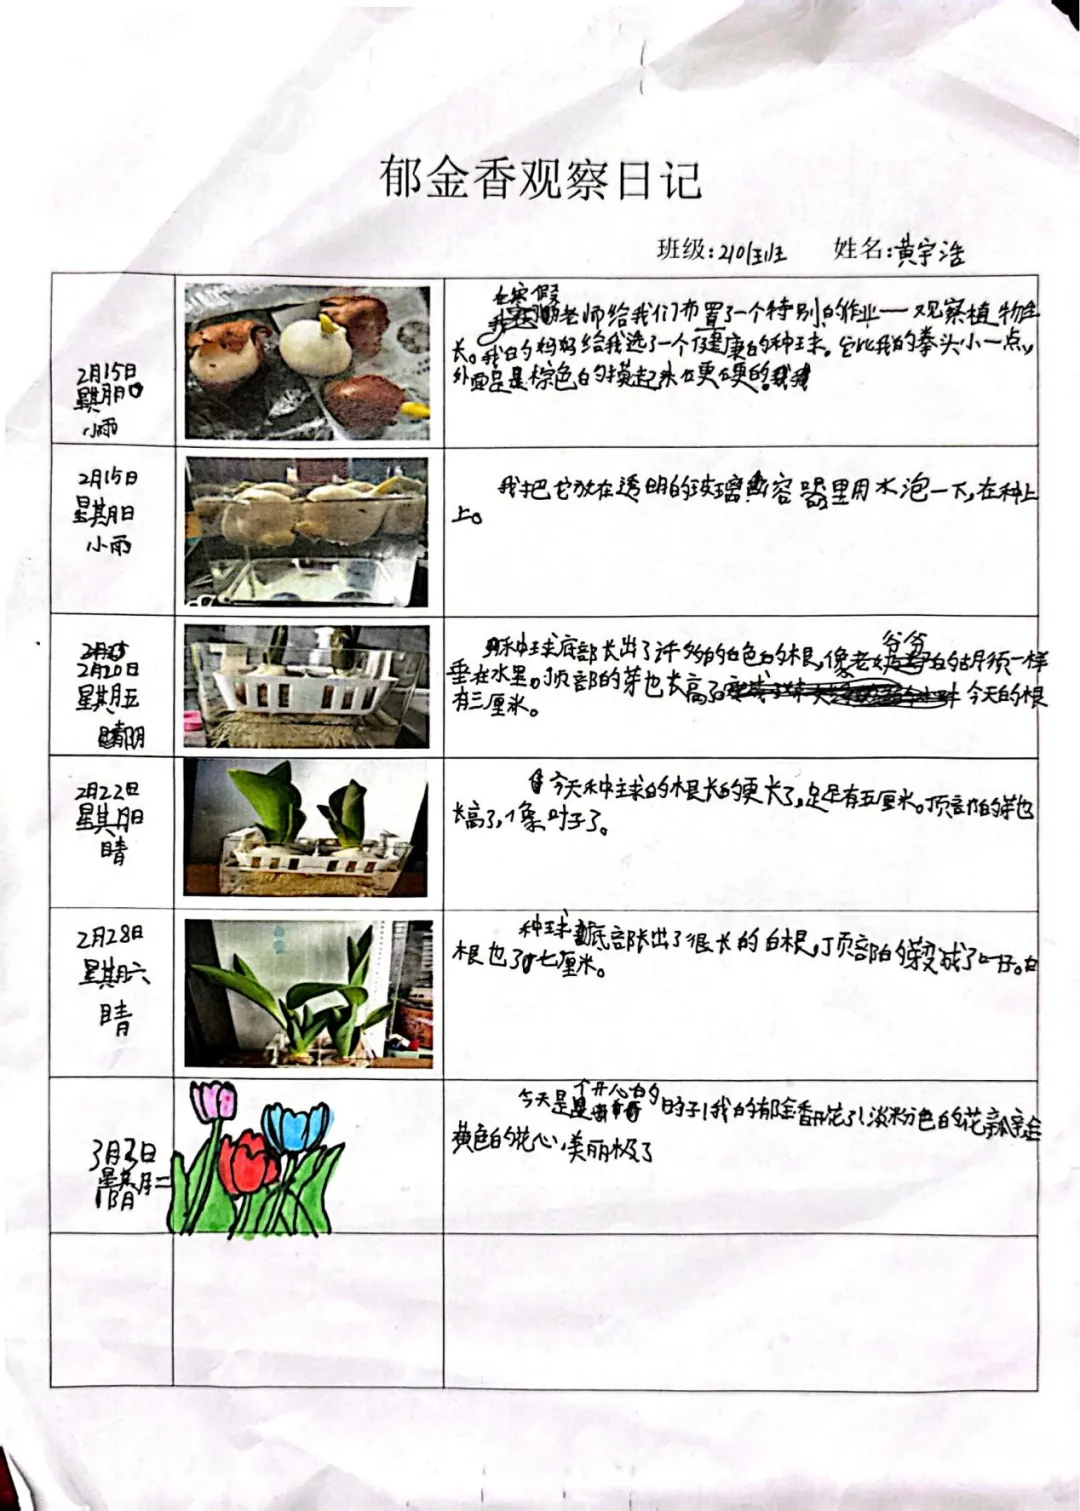 郁金香观察日记
班级:210班 姓名:黄宇浩
2月15日
星期日
小雨
在寒假
老师给我们布置了一个特别的作业一观察植物生
长。我的妈妈给我选了一个健康的种球。它比我的拳头小一点,
外面是棕色的摸起来硬硬的。
2月15日
星期日
小雨
我把它放在透明的玻璃容器里用水泡一下,在种上
上。
2月20日
星期五
阴
种球底部长出了许多的白色的根,像老爷爷的胡须一样
垂在水里。顶部的芽也长高了 今天的根
有三厘米。
2月22日
星期日
晴
今天种球的根长的更长了,足足有五厘米。顶部的芽也
长高了,像叶子了。
2月28日
星期六
晴
种球底部长出了很长的白根,顶部的芽变成了叶子。白
根也了七厘米。
3月3日
星期二
阴
今天是个开心的日子!我的郁金香开花了!淡粉色的花瓣
黄色的花心,美丽极了